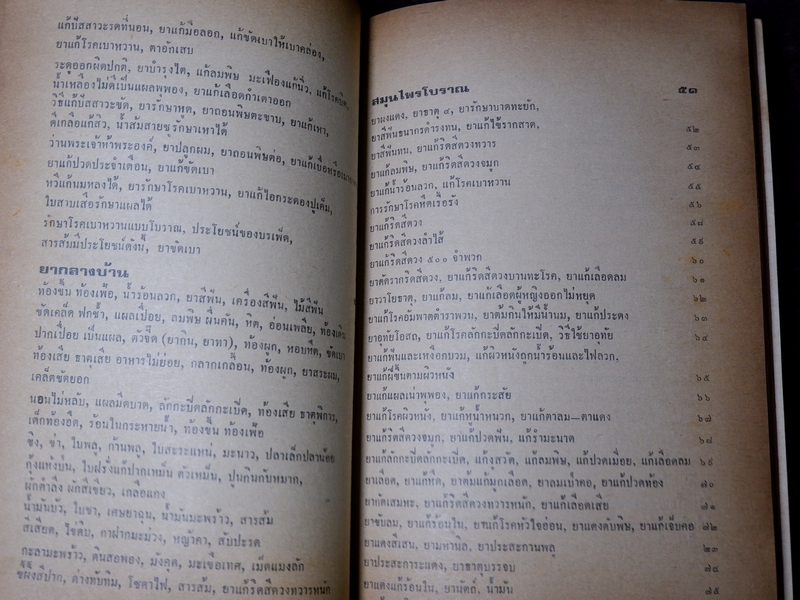 แก้ปัสสาวะรดที่นอน, ยาแก้มือลอก, แก้ขัดเบาให้เบาคล่อง,
ยาแก้โรคเบาหวาน, ตาอักเสบ
ระดูออกผิดปกติ, ยาบำรุงไต, แก้ลมพิษ มะเฟืองแก้นิ่ว, แก้โรคบิด,
น้ำเหลืองไม่ดีเป็นแผลพุพอง, ยาแก้เลือดกำเดาออก
วิธีแก้ปัสสาวะขัด, ยารักษาหูด, ยาถอนพิษตะขาบ, ยาแก้เหา,
ดีเกลือแก้สิว, น้ำส้มสายชูรักษาเหาได้
ว่านพระเจ้าห้าพระองค์, ยาปลูกผม, ยาถอนพิษต่อ, ยาแก้เบื่อ
ยาแก้ปวดประจำเดือน, ยาแก้ขัดเบา
หวีแก้นมหลงได้, ยารักษาโรคเบาหวาน, ยาแก้ไอกระดองปูเค็ม,
ใบสาบเสือรักษาแผลได้
รักษาโรคเบาหวานแบบโบราณ, ประโยชน์ของบรเพ็ด,
สารส้มมีประโยชน์ดังนี้, ยาขัดเบา
ยากลางบ้าน
ท้องขึ้น ท้องเฟ้อ, น้ำร้อนลวก, ยาสีฟัน, เครื่องสีฟัน, ไม้สีฟัน
ขัดเคล็ด ฟกช้ำ, แผลเปื่อย, ลมพิษ ผื่นคัน, หิด, อ่อนเพลีย, ท้องเดิน
ปากเปื่อย เป็นแผล, ตัวจี๊ด (ยากิน, ยาทา), ท้องผูก, หอบหืด, ขัดเบา
ท้องเสีย ธาตุเสีย อาหารไม่ย่อย, กลากเกลื้อน, ท้องผูก, ยาสระผม,
เคล็ดขัดยอก
นอนไม่หลับ, แผลมีดบาด, ลักกะปิดลักกะเปิด, ท้องเสีย ธาตุพิการ,
เด็กท้องอืด, ร้อนในกระหายน้ำ, ท้องขึ้น ท้องเฟ้อ
ขิง, ข่า, ใบพลู, ก้านพลู, ใบสะระแหน่, มะนาว, ปลาเล็กปลาน้อย
กุ้งแห้งป่น, ใบฝรั่งแก้ปากเหม็น ตัวเหม็น, ปูนกินกับหมาก,
ผักตำลึง ผักสีเขียว, เกลือแกง
น้ำมันบัว, ใบชา, เศษยาฉุน, น้ำมันมะพร้าว, สารส้ม
สีเสียด, ไข่ดิบ, กาฝากมะม่วง, หญ้าคา, สับปะรด
กะลามะพร้าว, ดินสอพอง, มังคุด, มะเขือเทศ, เม็ดแมงลัก
ขี้ผึ้งสีปาก, ด่างทับทิม, โซดาไฟ, สารส้ม, ยาแก้ริดสีดวงทวารหนัก
สมุนไพรโบราณ ๕๑
ยาผงแดง, ยาธาตุ ๔, ยารักษาบาดทะยัก,
ยาสีฟันธนากรดำรงทน, ยาแก้ไข้รากสาด, ๕๒
ยาสีฟันทน, ยาแก้ริดสีดวงทวาร ๕๓
ยาแก้ลมพิษ, ยาแก้ริดสีดวงจมูก ๕๔
ยาแก้น้ำร้อนลวก, แก้โรคเบาหวาน ๕๕
การรักษาโรคหืดเรื้อรัง ๕๖
ยาแก้ริดสีดวง ๕๘
ยาแก้ริดสีดวงลำไส้ ๕๙
ยาแก้ริดสีดวง ๕๐๐ จำพวก ๖๐
ยาตัดรากริดสีดวง, ยาแก้ริดสีดวงบานทะโรค, ยาแก้เลือดลม ๖๑
ยาวาโยธาตุ, ยาแก้ลม, ยาแก้เลือดผู้หญิงออกไม่หยุด ๖๒
ยาแก้โรคอัมพาตตำราพวบ, ยาต้มกินให้มีน้ำนม, ยาแก้ประดง ๖๓
ยาอุทัยโอสถ, ยาแก้โรคลักกะปิดลักกะเปิด, วิธีใช้ยาอุทัย ๖๔
ยาแก้ฟันและเหงือกบวม, ยาแก้ผิวหนังถูกน้ำร้อนและไฟลวก,
ยาแก้ฝีขึ้นตามผิวหนัง ๖๕
ยาแก้แผลเน่าพุพอง, ยาแก้กระสัย ๖๖
ยาแก้โรคผิวหนัง, ยาแก้หูน้ำหนวก, ยาแก้ตาลม—ตาแดง ๖๗
ยาแก้ริดสีดวงจมูก, ยาแก้ปวดฟัน, แก้รำมะนาด ๖๘
ยาแก้ลักกะปิดลักกะเปิด, แก้งูสวัด, แก้ลมพิษ, แก้ปวดเมื่อย, แก้เลือดลม ๖๙
ยาเลือด, ยาแก้หืด, ยาต้มแก้มุกเลือด, ยาลมเบาคอ, ยาแก้ปวดท้อง ๗๐
ยากัดเสมหะ, ยาแก้ริดสีดวงทวารหนัก, ยาแก้เลือดเสีย ๗๑
ยาขับลม, ยาแก้ร้อนใน, ยาแก้โรคหัวใจอ่อน, ยาแดงดับพิษ, ยาแก้เจ็บคอ ๗๒
ยาแดงสีเสน, ยามหานิล, ยาประสะกานพลู ๗๓
ยาประสะการะแดง, ยาธาตุบรรจบ ๗๔
ยาแดงแก้ร้อนใน, ยานัตถ์, น้ำมัน ๗๕